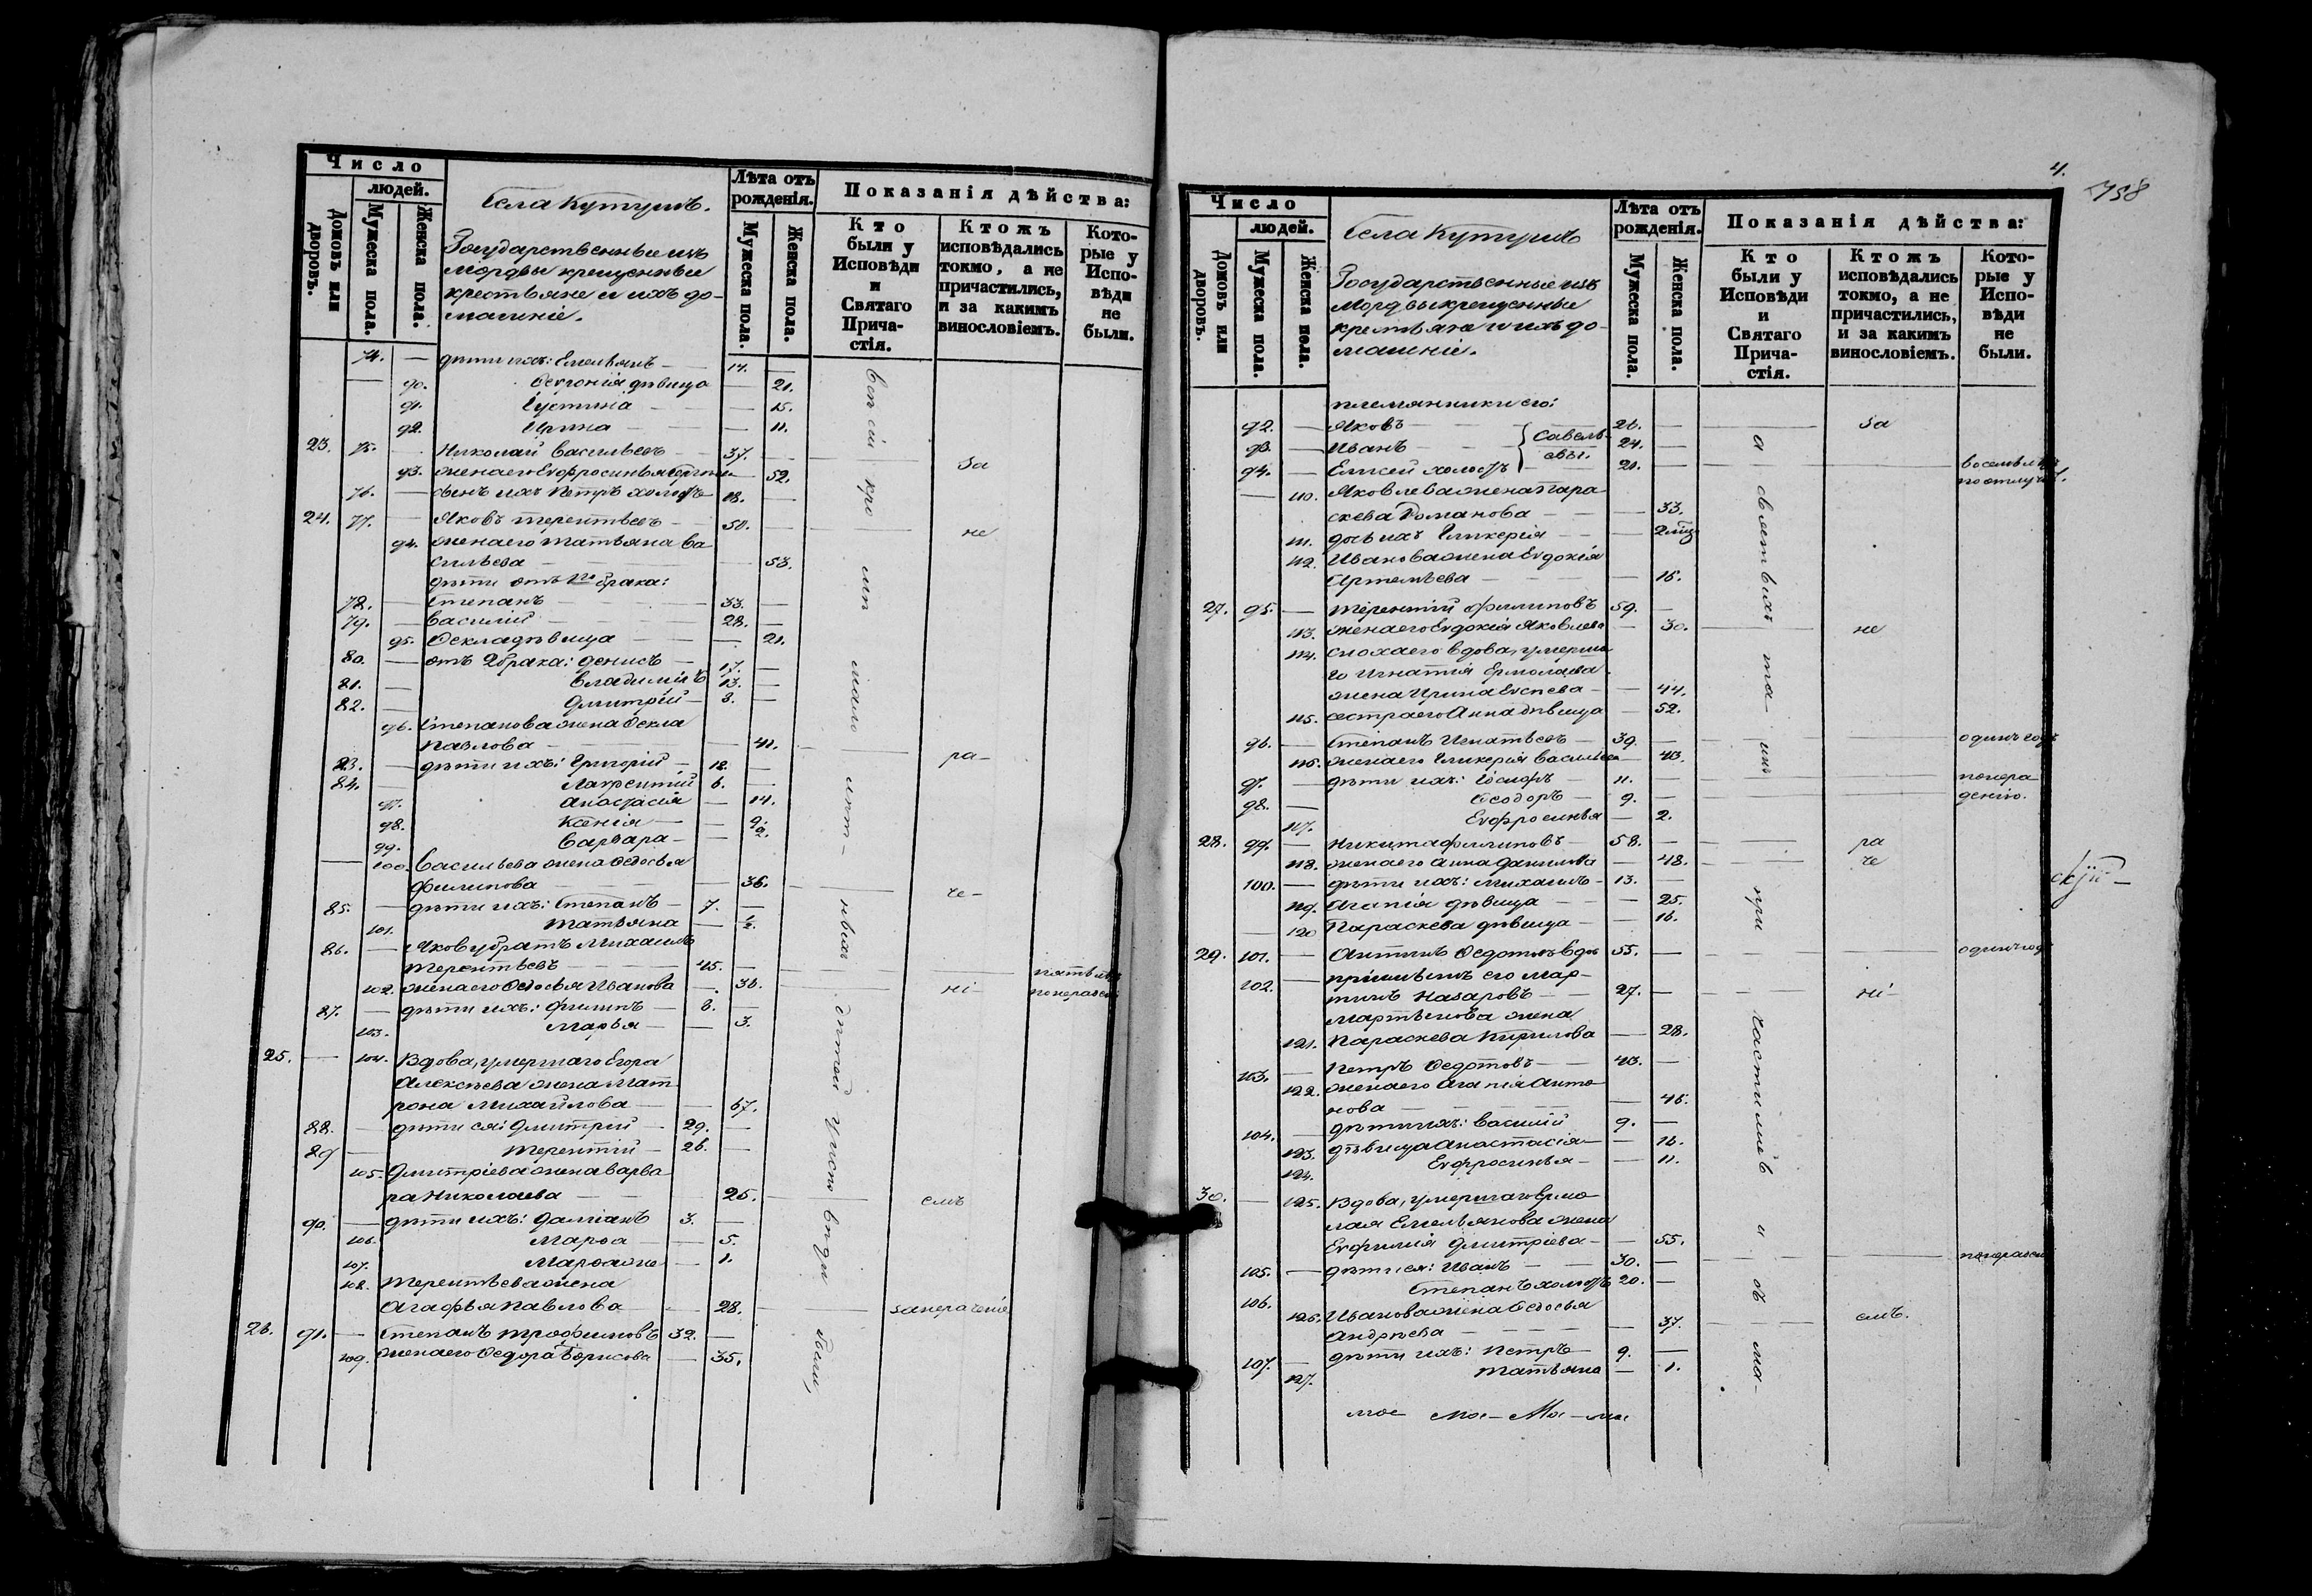 Число
людей.
Домовъ или дворовъ.
Мужеска пола.
Женска пола.
Села Кутушъ.
Государственные изъ
Мордвы крещенные
крестьяне и ихъ до-
машніе.
Лѣта отъ рожденія.
Мужеска пола.
Женска пола.
Показанія дѣйства:
Кто были у Исповѣди и Святаго Прича-стія.
Ктожъ исповѣдались токмо, а не причастились, и за какимъ винословіемъ.
Кото-рые у Испо-вѣди не были.
74. — дѣти ихъ: Емельянъ — 14. —
— 90. Ѳевронія дѣвица — 21.
91. Іустинія — 15.
92. Ирина — 11.
23. 75. Николай Васильевъ — 37. —
93. жена его Евфросинья — 52. за
76. — сынъ ихъ Петръ холостъ 18. —
24. 77. — Яковъ Терентьевъ — 50. — не
94. жена его Татьяна Ва
сильева — 53.
дѣти отъ 1го брака:
78. — Степанъ — 33. —
79. — Василий — 28. —
95. Ѳекла дѣвица — 21.
80. — отъ 2 брака: Денисъ — 17. —
81. — Владиміръ 13. —
82. — Дмитрій — 8. —
96. Степанова жена Ѳекла
Павлова — 41. ра-
83. — дѣти ихъ: Григорій — 12. —
84. — Лаврентій 6. —
97. Анастасія — 14.
98. Ксенія — 9.
99. Варвара — 2.
— 100. Васильева жена Ѳедосья
Филипова — 36. че-
85. — дѣти ихъ: Степанъ — 7. —
101. Татьяна — ½.
86. — Якову братъ Михаилъ
Терентьевъ — 45. —
102. жена его Ѳедосья Иванова — 38. ні-
87. — дѣти ихъ: Филипъ — 8. —
103. Марья — 3.
25. — 104. Вдова, умершаго Егора
Алексѣева жена Мат
рона Михайлова — 67.
88. — дѣти ея: Дмитрий — 29. —
89 — Терентій — 26. —
105. Дмитріева жена Варва
ра Николаева — 25. емъ
90. — дѣти ихъ: Даміанъ 3. —
106. Марѳа — 5.
107. Марѳа же — 1.
108. Терентьева жена
Агафья Павлова — 28. за нераченіе
26. 91. — Степанъ Трофимовъ 32. —
109. жена его Ѳедора Борисова — 35.
4.
758
Число
людей.
Домовъ или дворовъ.
Мужеска пола.
Женска пола.
Села Кутушъ
Государственные изъ
Мордвы крещенные
крестьяне и ихъ до-
машніе.
Лѣта отъ рожденія.
Мужеска пола.
Женска пола.
Показанія дѣйства:
Кто были у Исповѣди и Святаго Прича-стія.
Ктожъ исповѣдались токмо, а не причастились, и за какимъ винословіемъ.
Кото-рые у Испо-вѣди не были.
племянники его:
92. — Яковъ — 26. — за
93. — Иванъ — Савель-евы. 24. —
94. — Елисей холостъ 21. — восемь лѣтъ
110. Яковлева жена Пара
скева Романова — 33.
111. дочь ихъ Гликерія — 2 мѣс
112. Иванова жена Евдокія
Артемьева — 18.
27. 95. — Терентій Филиповъ 59. —
113. жена его Евдокія Яковлева — 30. не
114. сноха его вдова, умерша
го Игнатія Ермолаева
жена Ирина — 44.
115. сестра его Анна дѣвица — 52.
96. — Степанъ Игнатьевъ — 39. — одинъ годъ
116. жена его Гликерія Васильева — 43.
97. — дѣти ихъ: Іосифъ — 11. — понера
98. — Ѳеодоръ — 9. — денію.
117. Евфросинья — 2.
28. 99. — Никита Филиповъ — 58. — ра
118. жена его Анна Данилова — 48. че
100. — дѣти ихъ: Михаилъ — 13. —
119. Агапія дѣвица — 25.
— 120 Параскева дѣвица — 18.
29. 101. — Антипъ Ѳедотовъ вдов 55. — одинъ годъ
102. — пріимышъ его Мар-
тинъ Назаровъ — 27. — ні-
Мартынова жена
121. Параскева Кирилова — 28.
103. — Петръ Ѳедотовъ — 43. —
122. жена его Агапія Анто
нова — 46.
104. — дѣти ихъ: Василій 9. —
123. дѣвица Анастасія — 16.
124. Евфросинья — 11.
30. — 125. Вдова, умершаго Ермо
лая Емельянова жена
Евфимія Дмитріева — 55.
105. — дѣти ея: Иванъ — 30. —
106. Степанъ холостъ 20. —
126. Иванова жена Ѳедосья
Андреева — 37. емъ.
107. — дѣти ихъ: Петръ — 9. —
127. Татьяна — 1.